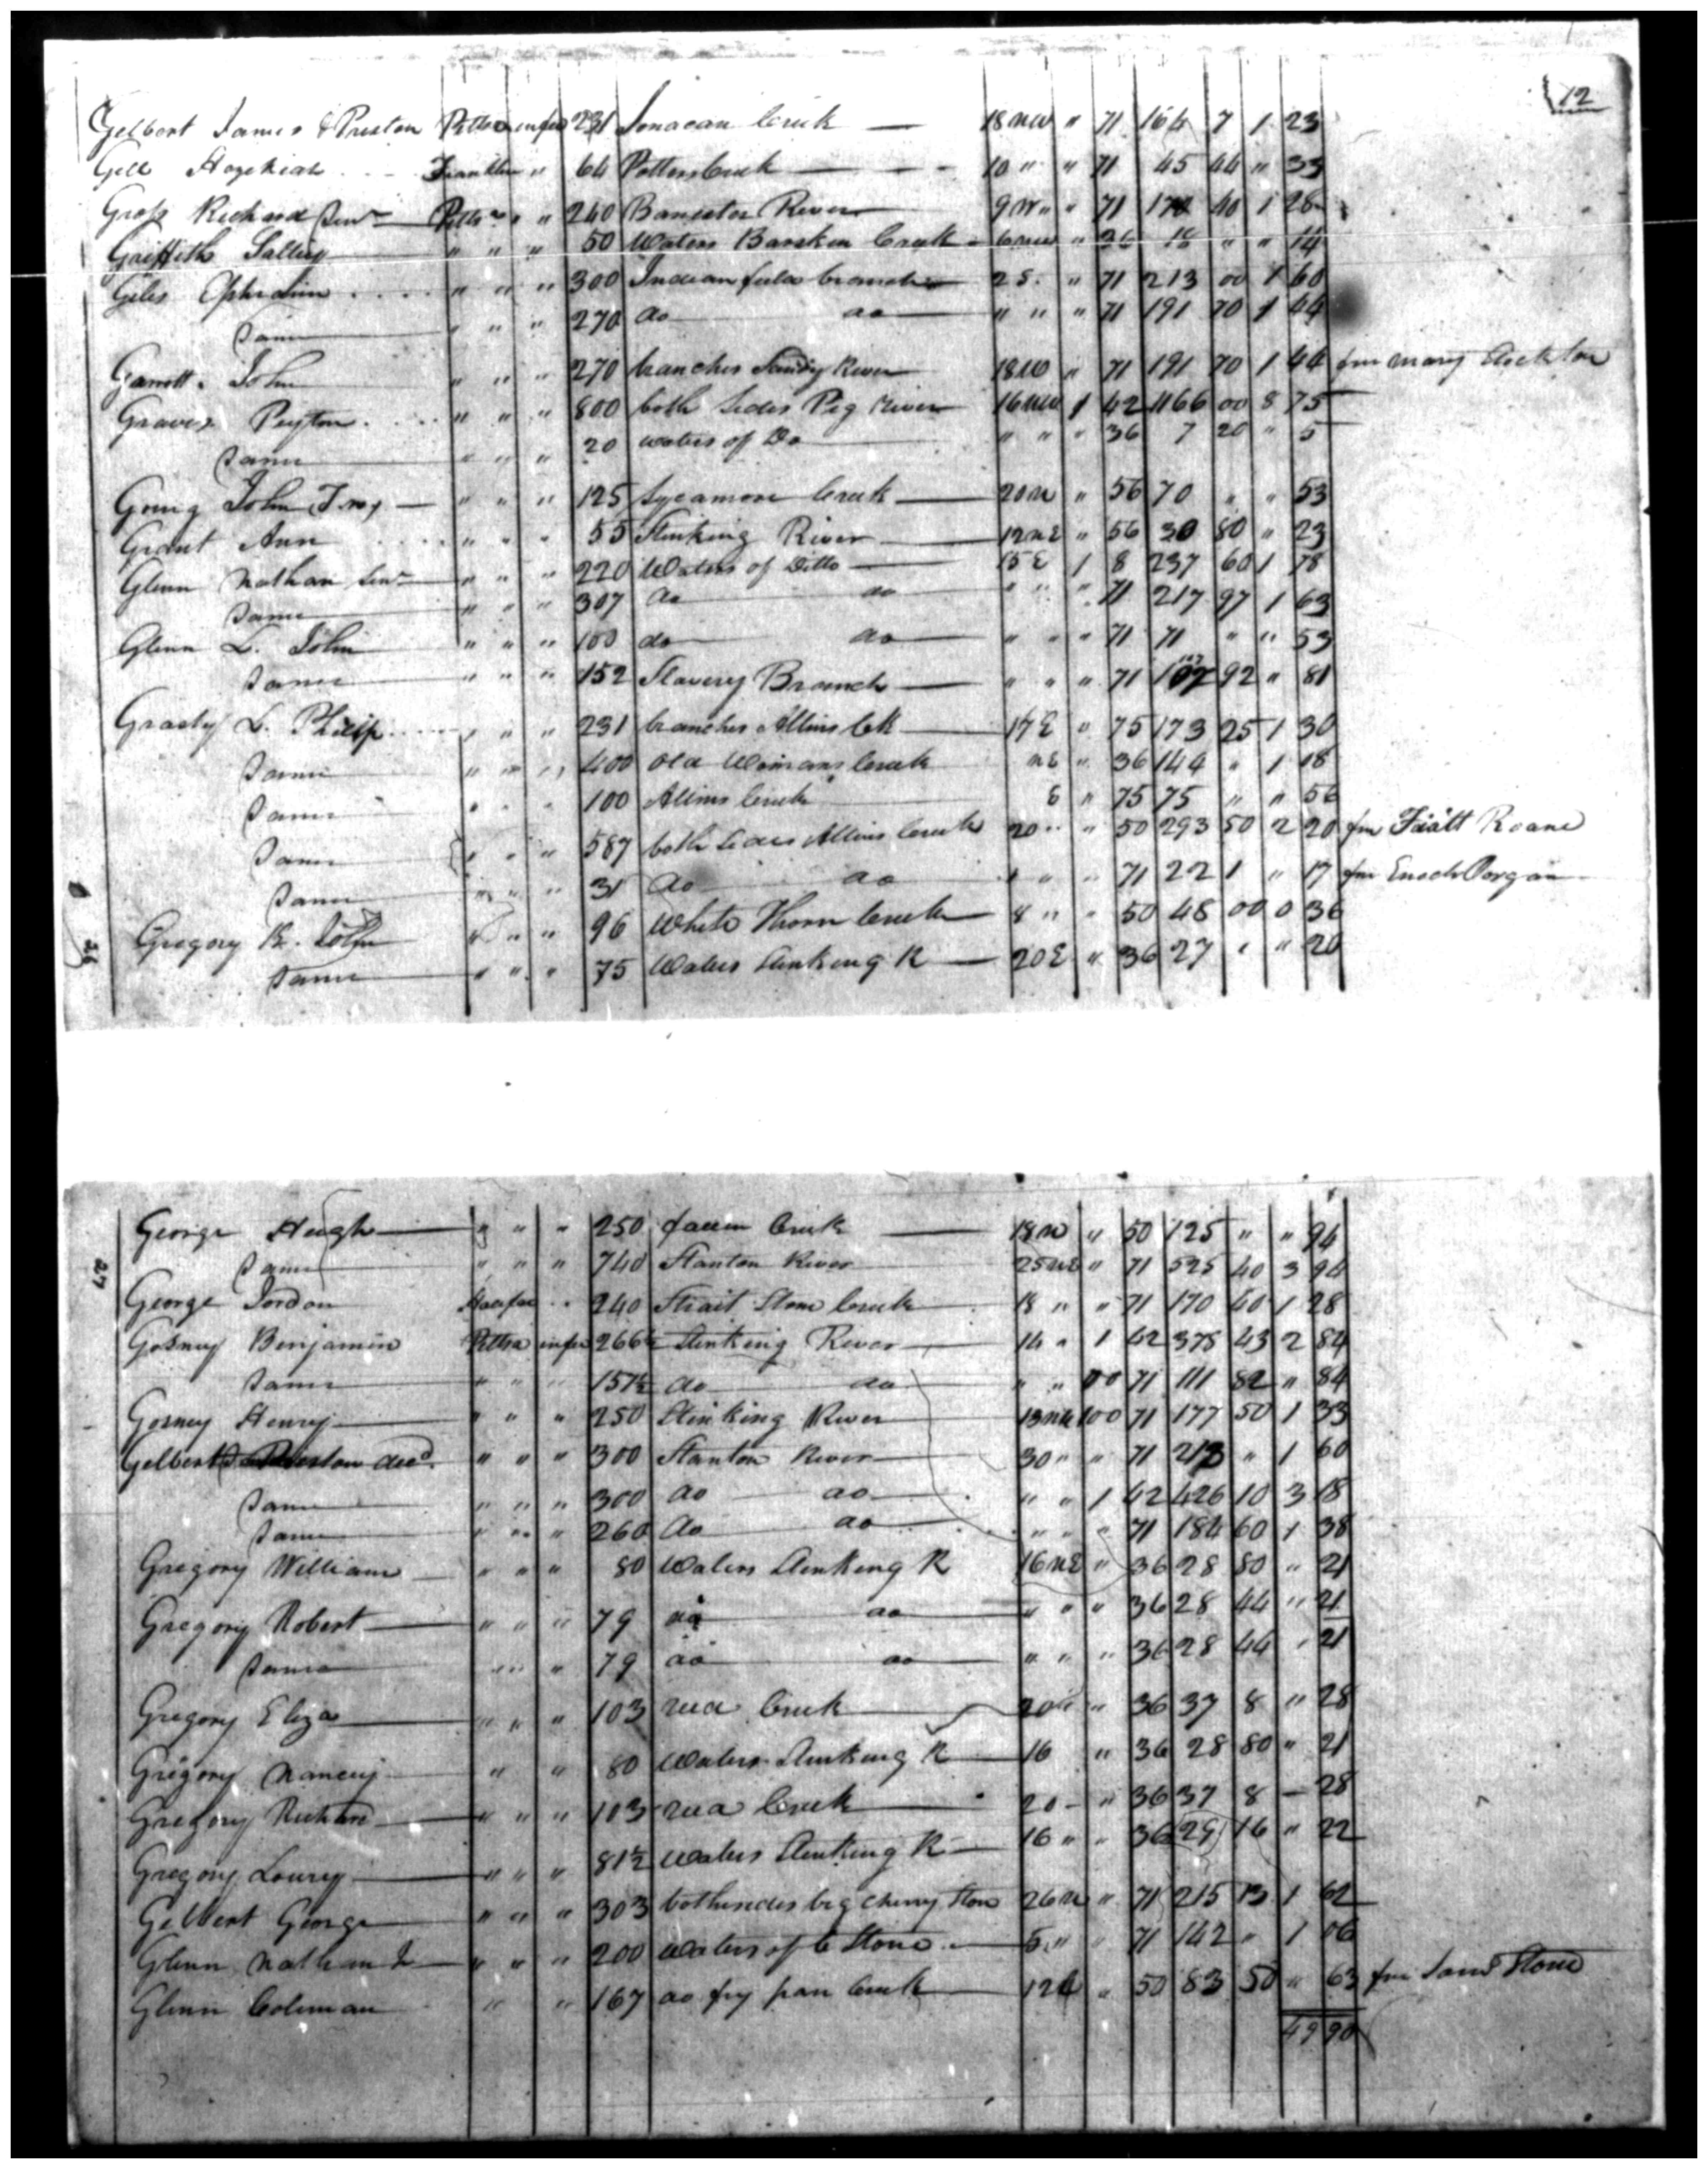 12
Gelbert James & Preston Pittsa in fee 231 Creek — 18 NW " 71 164 7 1 23
Gill Hezekiah Franklin " 64 Potters Creek — 10 " " 71 45 44 " 33
Gross Richard Senr — Pittsa " " 240 Banister River 9 W " " 71 170 40 1 28
Griffeths " " " 50 Waters Barskin Creek 6 NW " 36 18 " " 14
Giles Ephraim " " " 300 Indian field branch 2 S. " 71 213 00 1 60
Same " " " 270 do do " " " 71 191 70 1 44
Garrott John " " " 270 branches Sandy River 18 W " 71 191 70 1 44 fm Mary
Graves Peyton " " " 800 both sides Pig River 16 NW 1 42 1166 00 8 75
Same " " " 20 waters of Do " " " 36 7 20 " 5
John " " " 125 Sycamore Creek — 20 N " 56 70 " " 53
Grant Ann " " " 55 Stinking River 12 NE " 56 30 80 " 23
Glenn Nathan Senr " " " 220 Waters of Ditto 15 E 1 8 237 60 1 78
Same " " " 307 do do " " " 71 217 97 1 63
Glenn L. John " " " 100 do do " " " 71 71 " " 53
Same " " " 152 Branch — " " " 71 107 92 " 81
Grasty L. Philip " " " 231 branches Allins Ck — 17 E " 75 173 25 1 30
Same " " " 400 Old Womans Creek NE " 36 144 " 1 18
Same " " " 100 Allins Creek E " 75 75 " " 56
Same " " " 587 both sides Allins Creek 20 " " 50 293 50 2 20 fm Roane
Same " " " 31 do do " " " 71 22 1 " 17 fm Enoch
Gregory B. John " " " 96 White Thorn Creek 8 " " 50 48 00 0 36
Same " " " 75 Waters Stinking R — 20 E " 36 27 " " 20
26
27
George Hugh — " " " 250 Creek — 18 N " 50 125 " " 94
Same " " " 740 Stanton River 25 NE " 71 525 40 3 94
George Jordan Halifax " " 240 Strait Stone Creek 18 " " 71 170 40 1 28
Gosney Benjamin Pittsa in fee 266½ Stinking River 14 " 1 42 378 43 2 84
Same " " " 157½ do do " " 00 71 111 82 " 84
Gosney Henry — " " " 250 Stinking River 13 NE 100 71 177 50 1 33
Gelbert Preston decd. " " " 300 Stanton River 30 " " 71 213 " 1 60
Same " " " 300 do do " " 1 42 426 10 3 18
Same " " " 260 do do " " " 71 184 60 1 38
Gregory William " " " 80 Waters Stinking R 16 NE " 36 28 80 " 21
Gregory Robert — " " " 79 do do " " " 36 28 44 " 21
Same " " " 79 do do " " " 36 28 44 " 21
Gregory Eliza " " " 103 Creek 20 " " 36 37 8 " 28
Gregory Nancy " " 80 Waters Stinking R 16 " 36 28 80 " 21
Gregory Richard " " " 103 Creek 20 - " 36 37 8 — 28
Gregory Lowry " " " 81½ Waters Stinking R — 16 " " 36 29 16 " 22
Gelbert George " " " 303 both sides big Cherry Stone 26 N " 71 215 13 1 62
Glenn Nathan Jr " " " 200 Waters of C Stone — 5 " " 71 142 " 1 06
Glenn Coleman " " 167 do fry pan Creek 12 E " 50 83 50 " 63 fm Stone
49 90